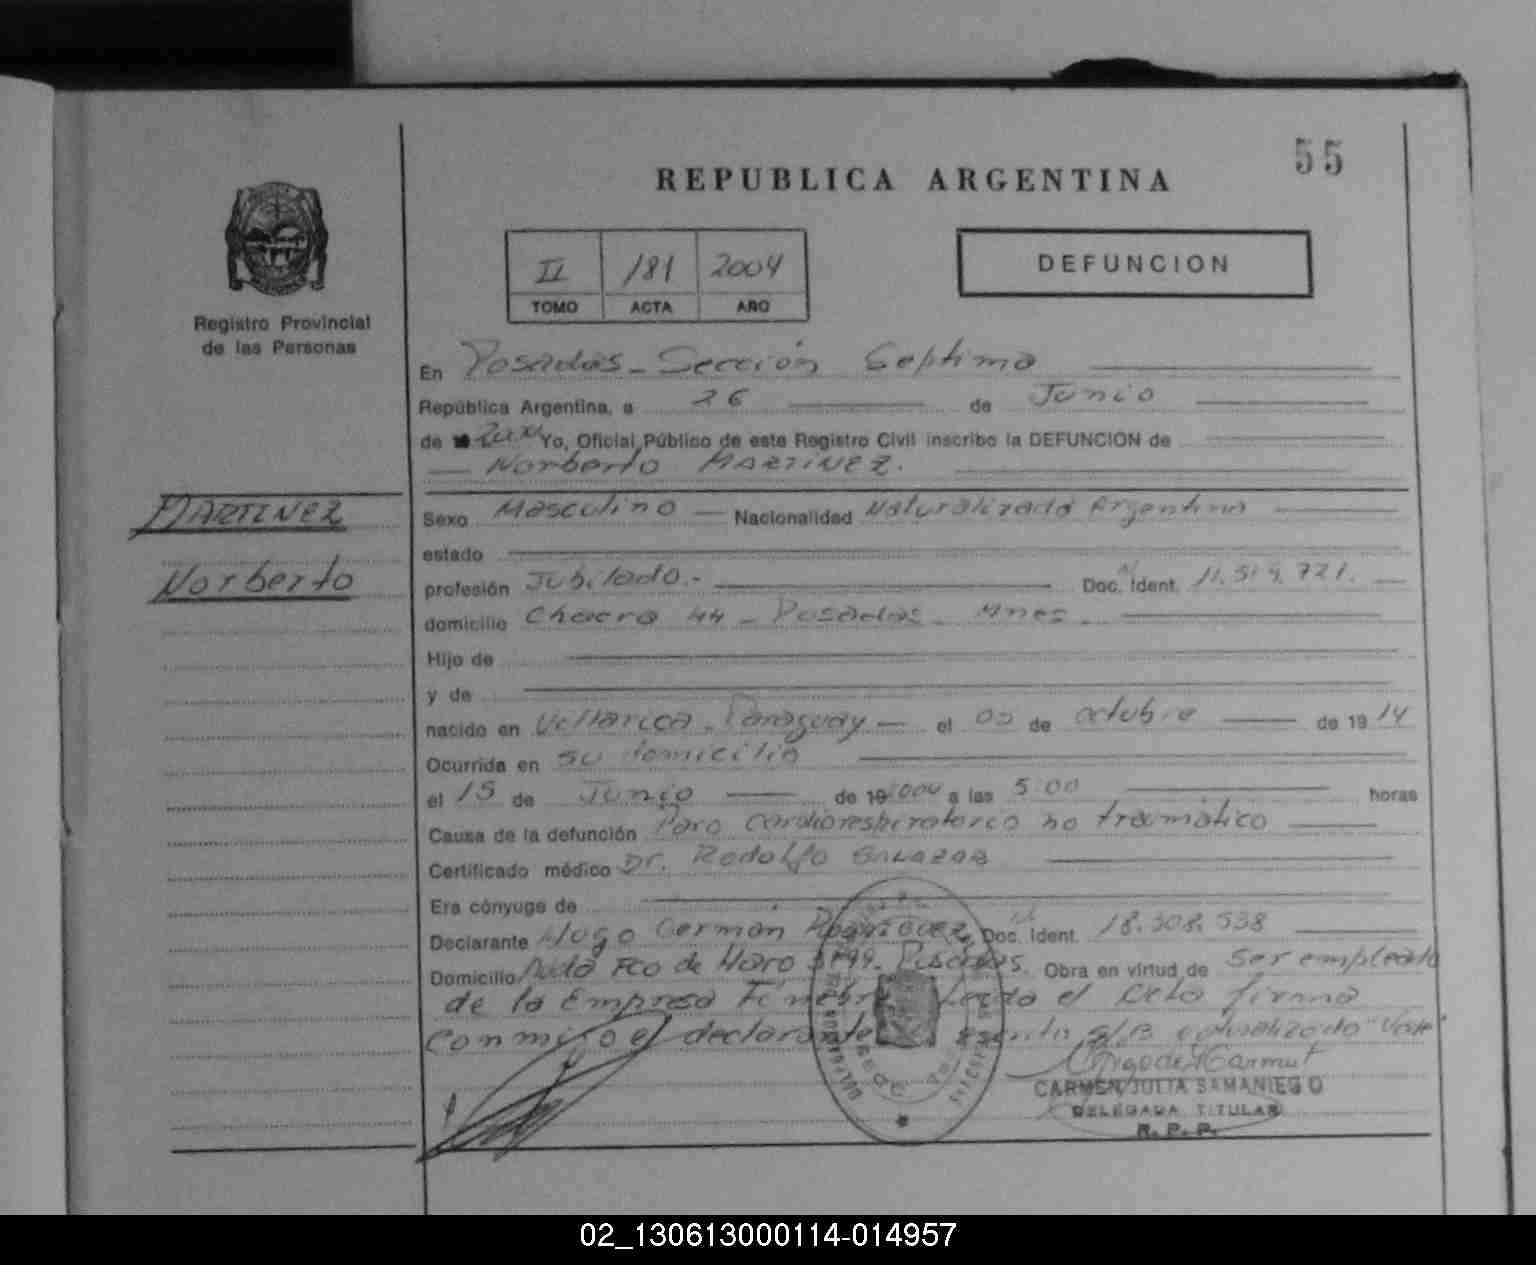 55
REPUBLICA ARGENTINA
II 181 2004
TOMO ACTA AÑO
DEFUNCION
Registro Provincial
de las Personas
En Posadas - Sección Septima
República Argentina, a 26 de Junio
de Yo, Oficial Público de este Registro Civil inscribo la DEFUNCION de
Norberto MARTINEZ.
MARTINEZ
Norberto
Sexo Masculino Nacionalidad Naturalizado Argentino
estado
profesión Jubilado.- Doc. Ident. 11.519.721.
domicilio Chacra 44 - Posadas - Mnes.
Hijo de
y de
nacido en Villarica - Paraguay el de octubre de 19 14
Ocurrida en su domicilio
el 15 de Junio de a las 5:00 horas
Causa de la defunción Paro cardiorespiratorio no traumático
Certificado médico Dr. Rodolfo SALAZAR
Era cónyuge de
Declarante Hugo Germán RODRIGUEZ Doc. Ident. 18.308.538
Domicilio Avda Fco de Haro Posadas. Obra en virtud de Ser empleado
de la Empresa Fúnebre Leida el Acta firma
conmigo el declarante "Vale"
CARMEN JULIA SAMANIEGO
DELEGADA TITULAR
R. P. P.
02_130613000114-014957